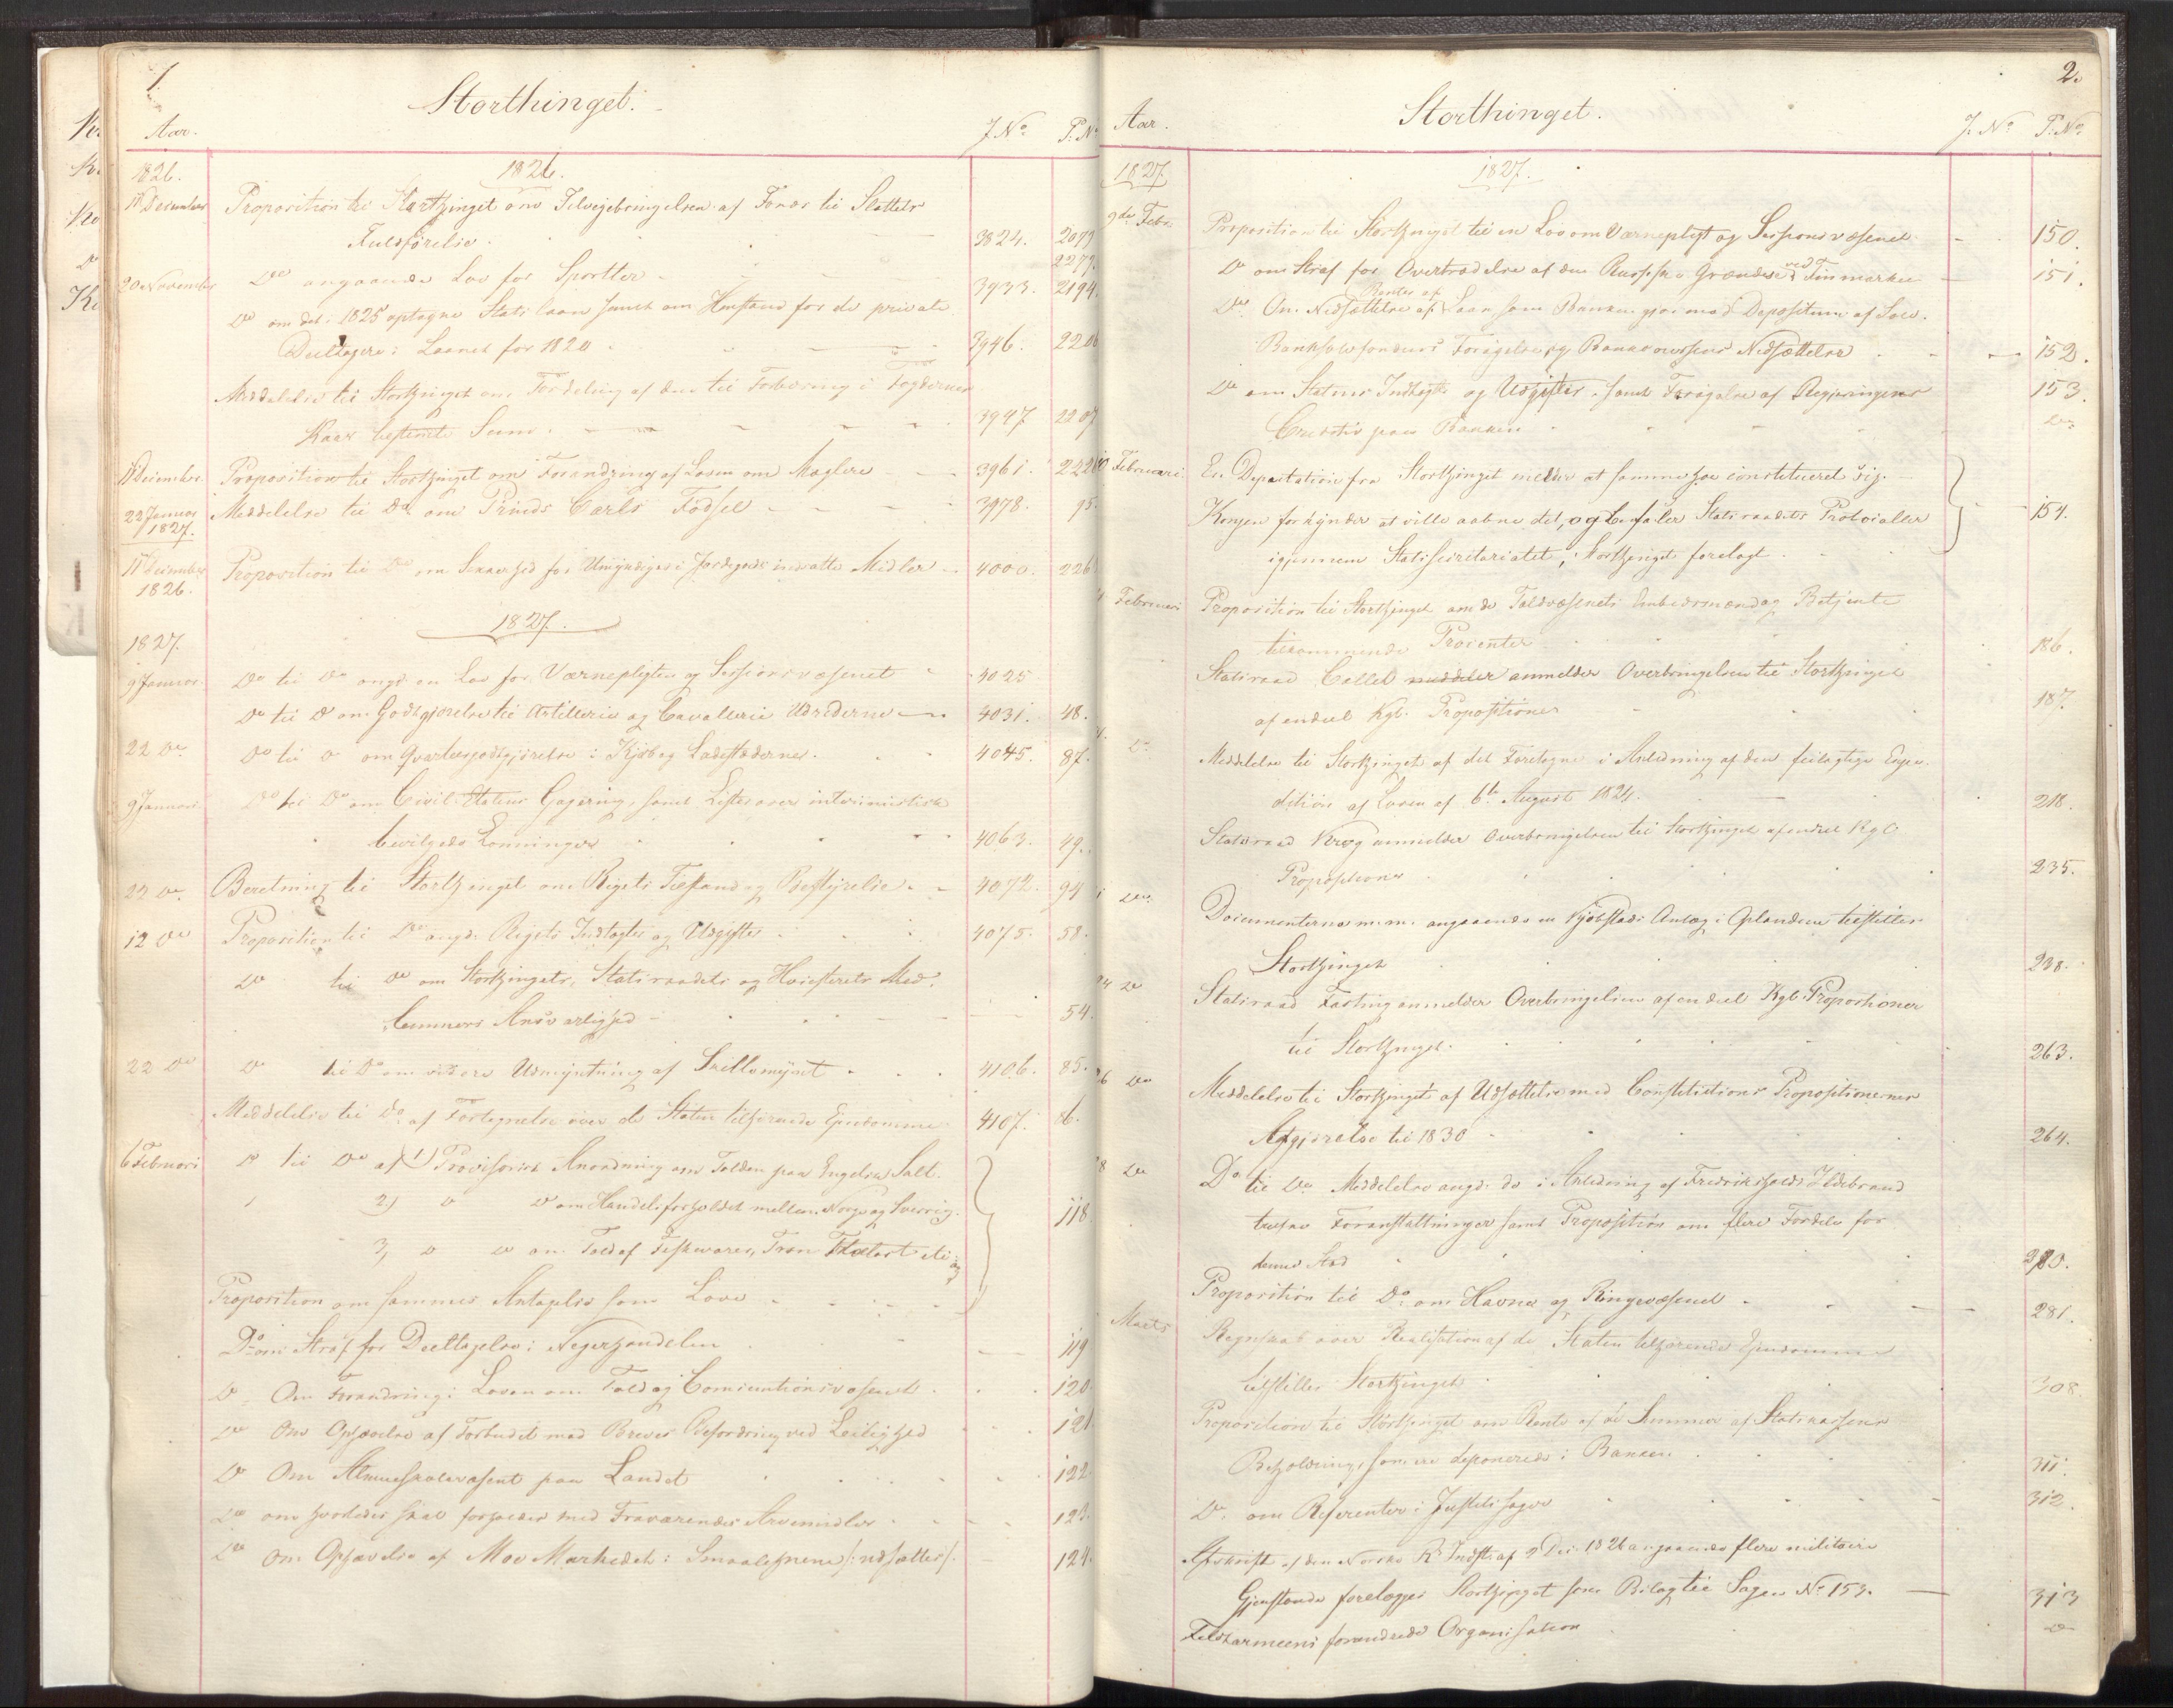 1.
Storthinget.
Aar.
J. No
P. No
1826.
1826.
Proposition til Storthinget om Tilveiebringelsen af Fonds til Slottets
Fuldførelse.
3824.
2079
2279.
20 November
Do angaaende Lov for Sportler
3933.
2194.
Do om det i 1825 optagne Statslaan samt om Henstand for de private
Deeltagere i Laanet for 1820
3946.
Meddelelse til Storthinget om Fordeling af den til Forbedring i Fogdernes
Kaar bestemte Sum.
3947
2207
December
Proposition til Storthinget om Forandring af Loven om Maglere
3961.
Meddelelse til Do om Prinds Carls Fødsel
3978.
95.
22 Januar
1827.
December
1826.
Proposition til Do om Sikkerhed for Umyndiges i Jordegods indsatte Midler
4000.
1827.
1827.
9 Januar
Do til Do angd. en Lov for Værnepligten og Sessionsvæsenet
4025
Do til Do om Godtgjørelse til Artillerie og Cavallerie Udrederne
4031.
48.
22 Do
Do til Do om Qvarteergodtgjørelse i Kjøb og Ladestæderne.
4045.
87.
9 Januar
Do til Do om Civil-Etatens Gagering, samt Lister over interimistisk
bevilgede Lønninger
4063.
49.
22 Do
Beretning til Storthinget om Rigets Tilstand og Bestyrelse.
4072.
94
12 Do
Proposition til Do angd. Rigets Indtægter og Udgifter
4075.
58.
Do til Do om Storthingets, Statsraadets og Høiesterets Med-
lemmers Ansvarlighed
54.
22 Do
Do til Do om videre Udmyntning af Skillemynt
4106.
85.
Meddelelse til Do af Fortegnelse over de Staten tilhørende Eiendomme
4107.
86.
6 Februari
Do til Do af 1) Provisorisk Anordning om Tolden paa Engelsk Salt.
2) Do Do om Handelsforholdet mellem Norge og Sverrig.
118.
3, Do Do om Told af Fiskevarer, Tran Trælast etc: og
Proposition om sammes Antagelse som Love
Do om Straf for Deeltagelse i Negerhandelen
119
Do Om Forandring i Loven om Told og Consumtionsvæsenet
120.
Do Om Ophævelse af Forbudet mod Breves Befordring ved Leilighed
121
Do Om Almueskolevæsenet paa Landet
122.
Do om hvorledes skal forholdes med Fraværendes Arvemidler
123.
Do Om Ophævelse af Mos Markedet i Smaalehnene /: udsættes /:
124.
2.
Storthinget.
Aar.
J. No
P. No
1827
1827.
9de Febr.
Proposition til Storthinget til en Lov om Værnepligt og Sessionsvæsenet
150.
Do om Straf for Overtrædelse af den Russiske Grændse ved Finmarken
151.
Renter af
Do Om Nedsættelse af Laan som Banken gjør mod Depositum af Sølv.
Banksølvfondens Forøgelse og Bankcoursens Nedsættelse
152.
Do om Statens Indtægter og Udgifter, samt Forøgelse af Regjeringens
153.
Creditiv paa Banken
Do
Februari
En Deputation fra Storthinget melder at samme har constitueret sig.
Kongen forkynder at ville aabne det, og befaler Statsraadets Protocoller
154.
igjennem Statssecretariatet, Storthinget forelagt.
Februari
Proposition til Storthinget om de Toldvæsenets Embedsmænd og Betjente
tilkommende Procenter
186.
Statsraad Collett meddeler anmelder Overbringelsen til Storthinget
af endeel Kgl. Propositioner
187.
Do
Meddelelse til Storthinget af det Foretagne i Anledning af den feilagtige Expe-
dition af Loven af 6te August 1824.
218.
Statsraad Krog anmelder Overbringelsen til Storthinget af endeel Kgl.
Propositioner
235.
Do
Documenterne m.m. angaaende en Kjøbstads Anlæg i Oplandene tilstilles
Storthinget
238.
24 Do
Statsraad Fasting anmelder Overbringelsen af en deel Kgl. Propositioner
til Storthinget.
263.
26 Do
Meddelelse til Storthinget af Udsættelse med Constitutions Propositionernes
Afgjørelse til 1830
264.
28 Do
Do til Do Meddelelse angd. de i Anledning af Fredrikshalds Ildebrand
trufne Foranstaltninger samt Proposition om flere Fordele for
denne Stad
280.
Proposition til Do om Havne og Ringevæsenet
281.
Marts
Regnskab over Realisation af de Staten tilhørende Eiendomme
tilstilles Storthinget
308.
Proposition til Storthinget om Rente af de Summer af Statskassens
Beholdning, som ere deponerede i Banken
311.
Do om Referenter i Justitssager
312.
Afskrift af den Norske R. Indst. af 2 Dec: 1826 angaaende flere militaire
Gjenstande forelægges Storthinget som Bilag til Sagen No 153.
313
Feldtarmeens forandrede Organisation
Do